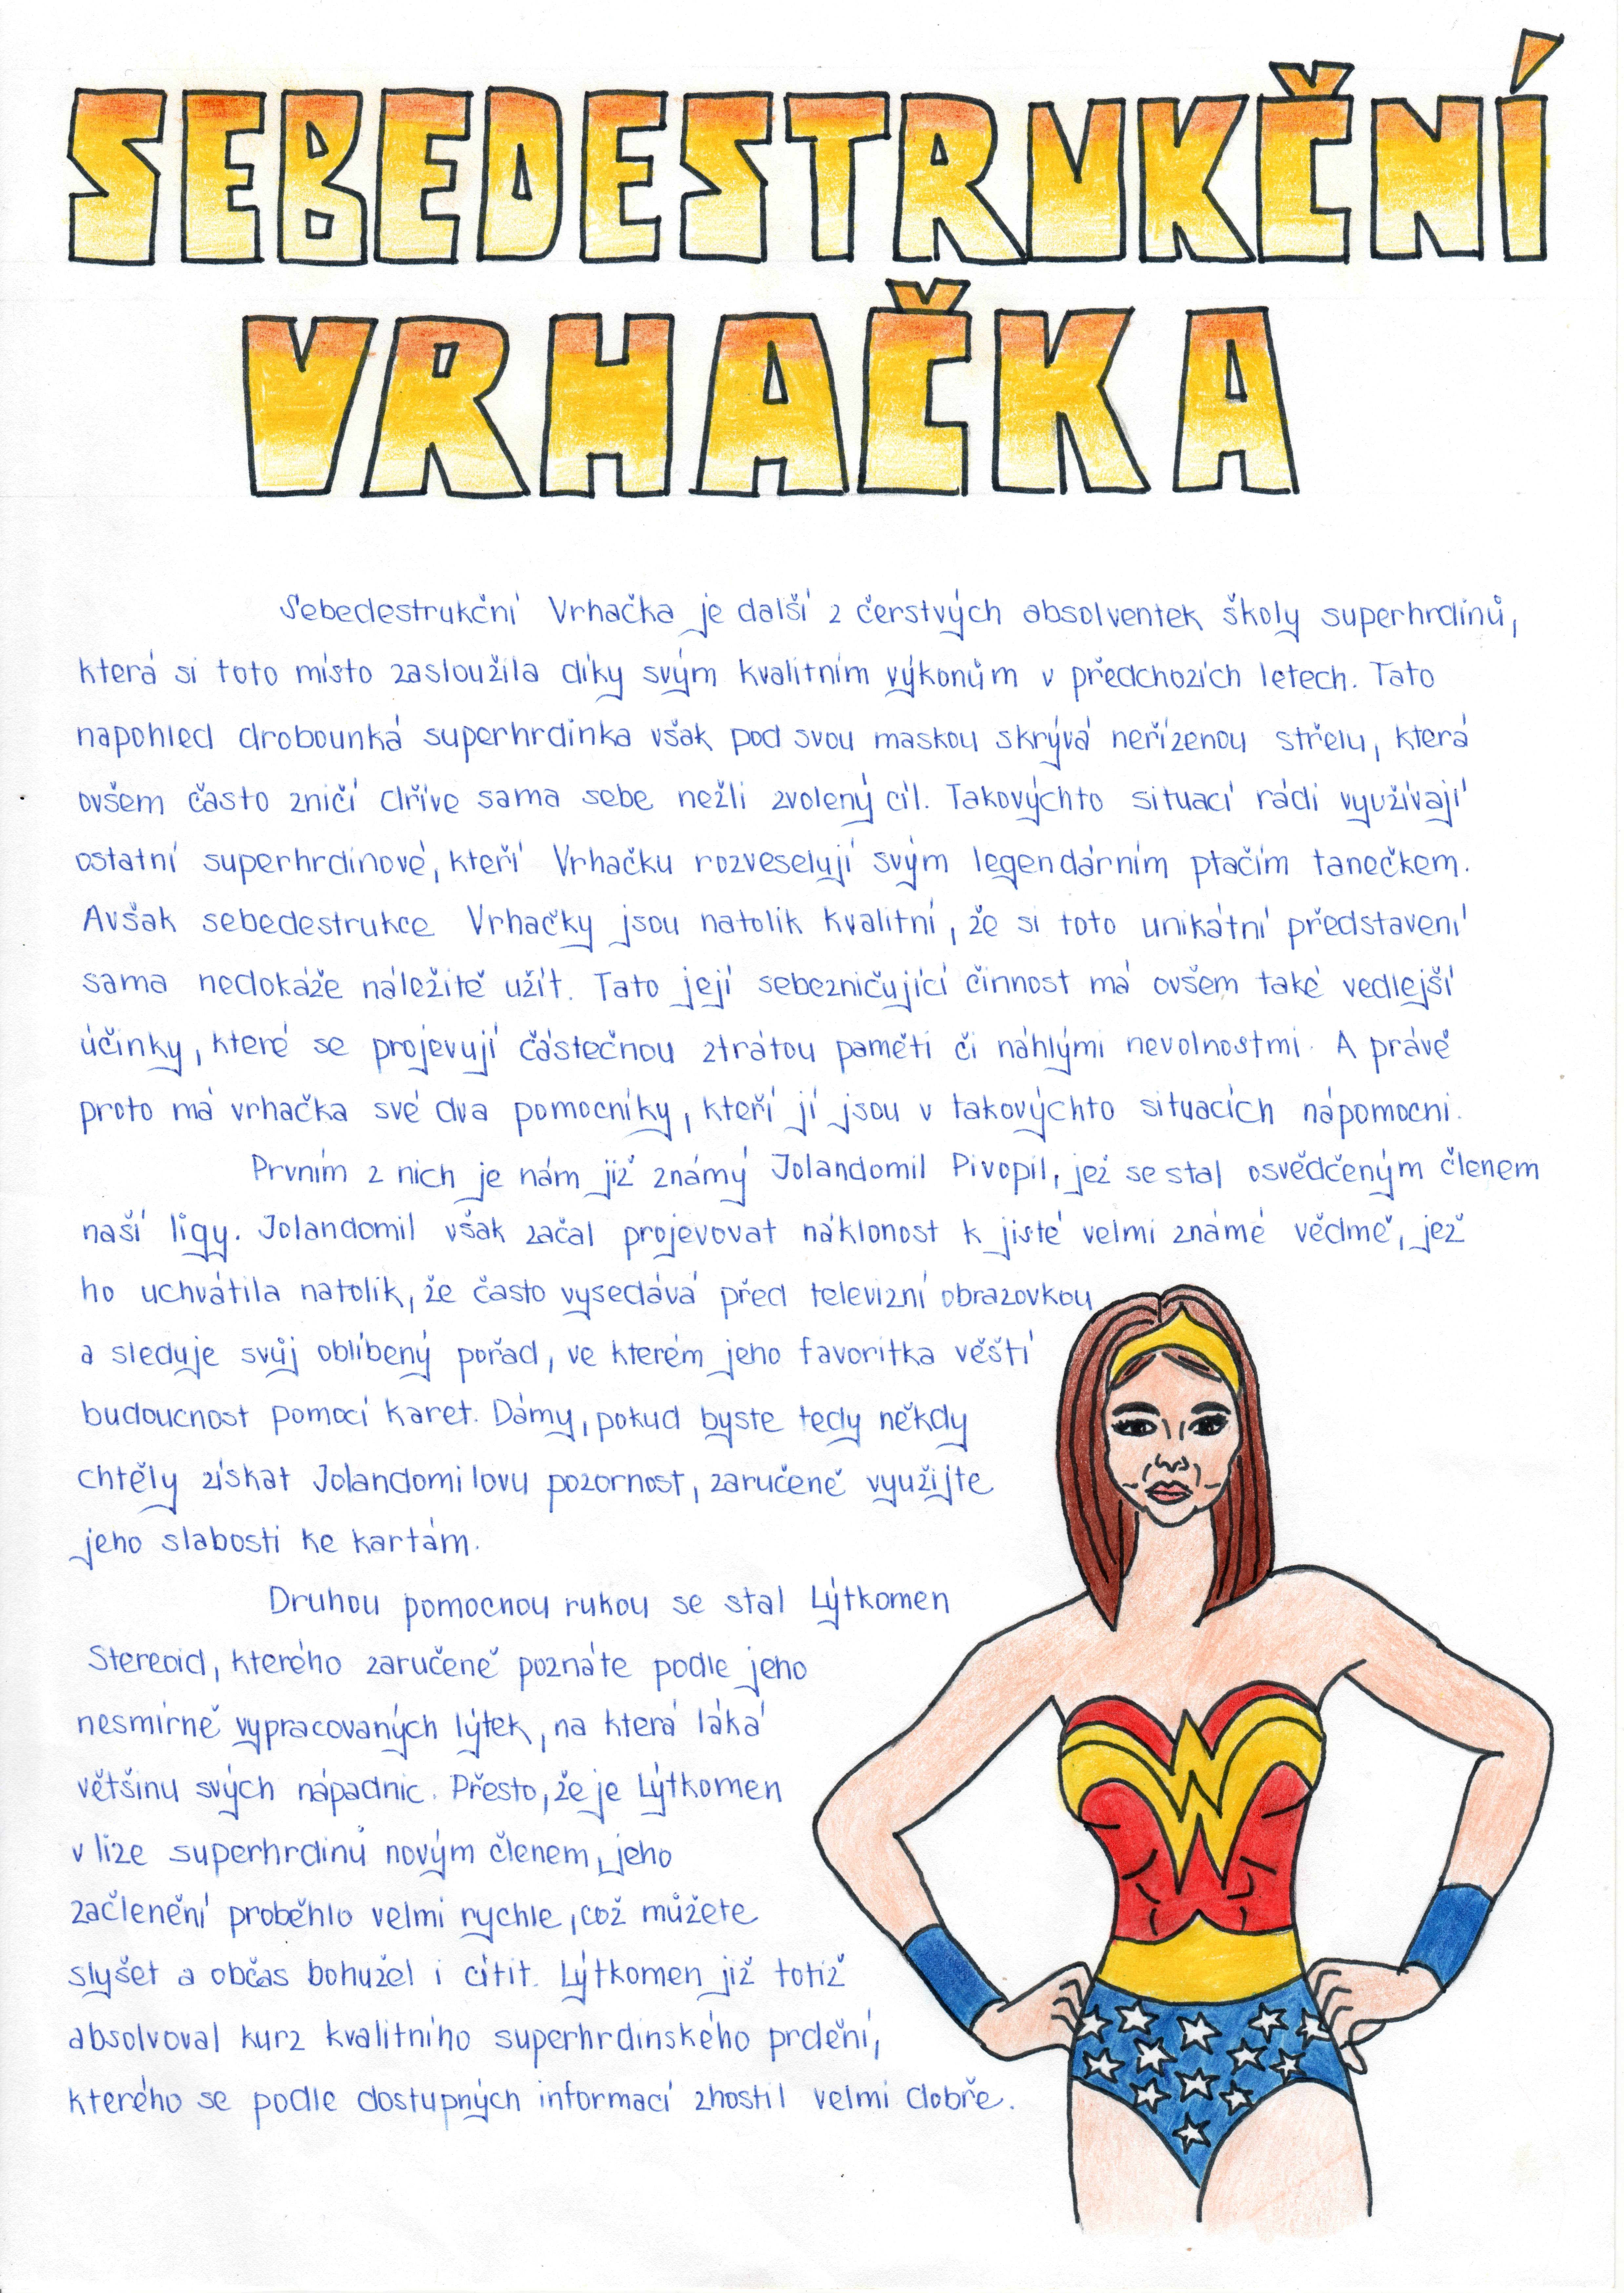 SEBEDESTRUKČNÍ
VRHAČKA
Sebedestrukční Vrhačka je další z čerstvých absolventek školy superhrdinů,
která si toto místo zasloužila díky svým kvalitním výkonům v předchozích letech. Tato
napohled drobounká superhrdinka však pod svou maskou skrývá neřízenou střelu, která
ovšem často zničí dříve sama sebe nežli zvolený cíl. Takovýchto situací rádi využívají
ostatní superhrdinové, kteří Vrhačku rozveselují svým legendárním ptačím tanečkem.
Avšak sebedestrukce Vrhačky jsou natolik kvalitní, že si toto unikátní představení
sama nedokáže náležitě užít. Tato její sebezničující činnost má ovšem také vedlejší
účinky, které se projevují částečnou ztrátou paměti či náhlými nevolnostmi. A právě
proto má vrhačka své dva pomocníky, kteří jí jsou v takovýchto situacích nápomocni.
Prvním z nich je nám již známý Jolandomil Pivopil, jež se stal osvědčeným členem
naší ligy. Jolandomil však začal projevovat náklonost k jisté velmi známé vědmě, jež
ho uchvátila natolik, že často vysedává před televizní obrazovkou
a sleduje svůj oblíbený pořad, ve kterém jeho favoritka věští
budoucnost pomocí karet. Dámy, pokud byste tedy někdy
chtěly získat Jolandomilovu pozornost, zaručeně využijte
jeho slabosti ke kartám.
Druhou pomocnou rukou se stal Lýtkomen
Stereoid, kterého zaručeně poznáte podle jeho
nesmírně vypracovaných lýtek, na která láká
většinu svých nápadnic. Přesto, že je Lýtkomen
v lize superhrdinů novým členem, jeho
začlenění proběhlo velmi rychle, což můžete
slyšet a občas bohužel i cítit. Lýtkomen již totiž
absolvoval kurz kvalitního superhrdinského prdění,
kterého se podle dostupných informací zhostil velmi dobře.